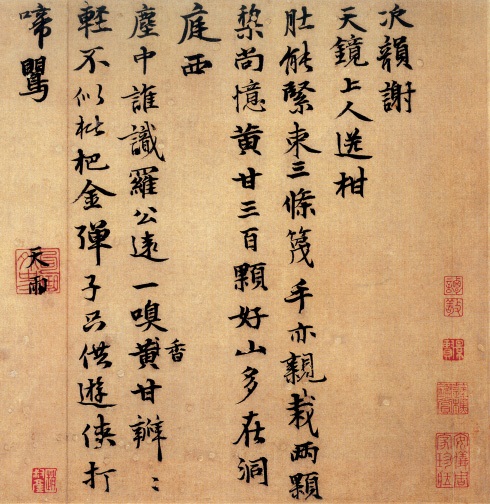 次韻謝
天鏡上人送柑
肚能緊束三條篾手亦親栽兩顆
梨尚憶黃甘三百顆好山多在洞
庭西
塵中誰識羅公遠一嗅黃甘瓣〻
香
輕不似枇杷金彈子只供遊俠打
啼鸎
天雨